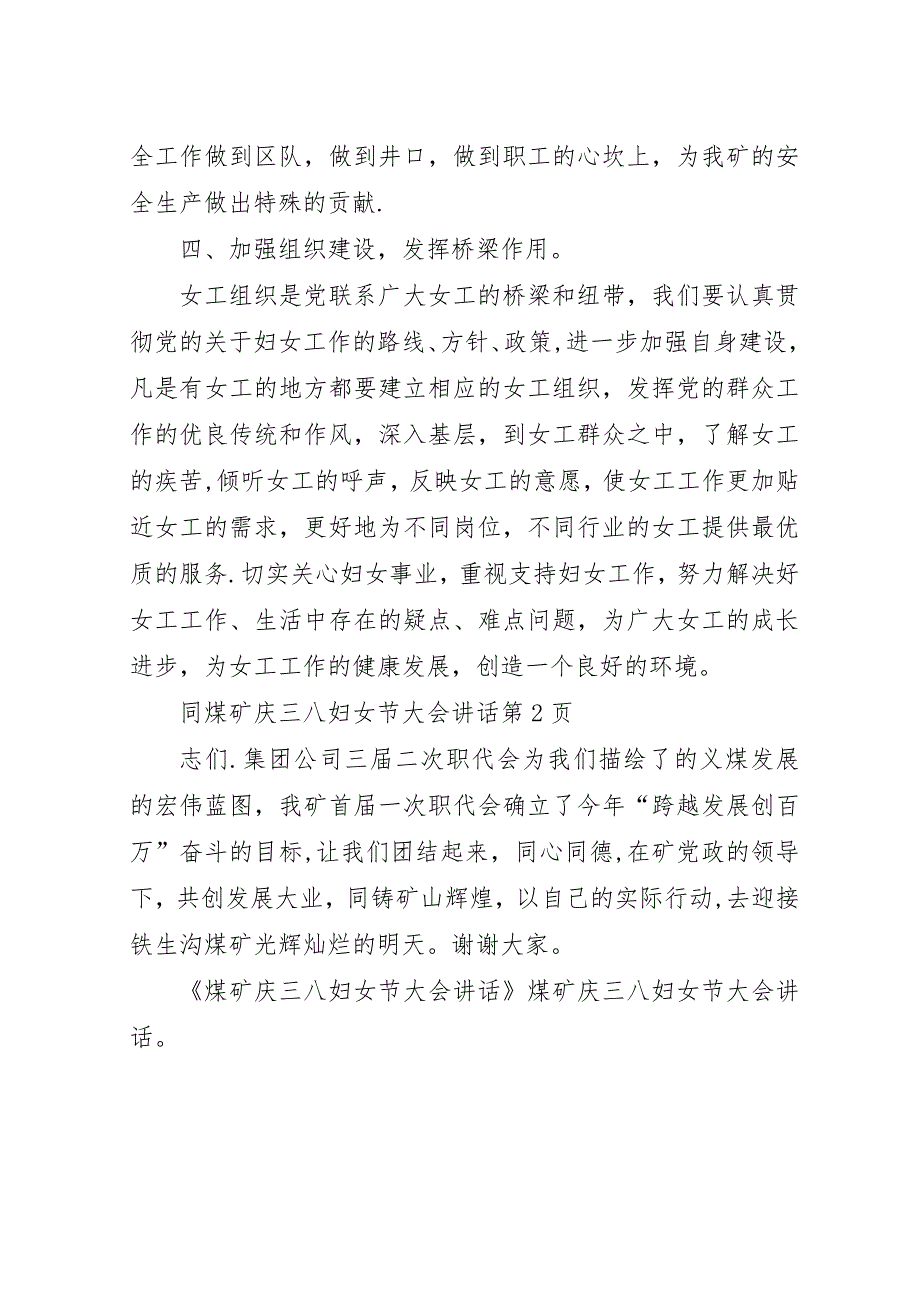 全工作做到区队，做到井口，做到职工的心坎上，为我矿的安
全生产做出特殊的贡献.
四、加强组织建设，发挥桥梁作用。
女工组织是党联系广大女工的桥梁和纽带，我们要认真贯
彻党的关于妇女工作的路线、方针、政策,进一步加强自身建设，
凡是有女工的地方都要建立相应的女工组织，发挥党的群众工
作的优良传统和作风，深入基层，到女工群众之中，了解女工
的疾苦,倾听女工的呼声，反映女工的意愿，使女工工作更加贴
近女工的需求，更好地为不同岗位，不同行业的女工提供最优
质的服务.切实关心妇女事业，重视支持妇女工作，努力解决好
女工工作、生活中存在的疑点、难点问题，为广大女工的成长
进步，为女工工作的健康发展，创造一个良好的环境。
同煤矿庆三八妇女节大会讲话第 2 页
志们.集团公司三届二次职代会为我们描绘了的义煤发展
的宏伟蓝图，我矿首届一次职代会确立了今年“跨越发展创百
万”奋斗的目标,让我们团结起来，同心同德,在矿党政的领导
下，共创发展大业，同铸矿山辉煌，以自己的实际行动,去迎接
铁生沟煤矿光辉灿烂的明天。谢谢大家。
《煤矿庆三八妇女节大会讲话》煤矿庆三八妇女节大会讲
话。